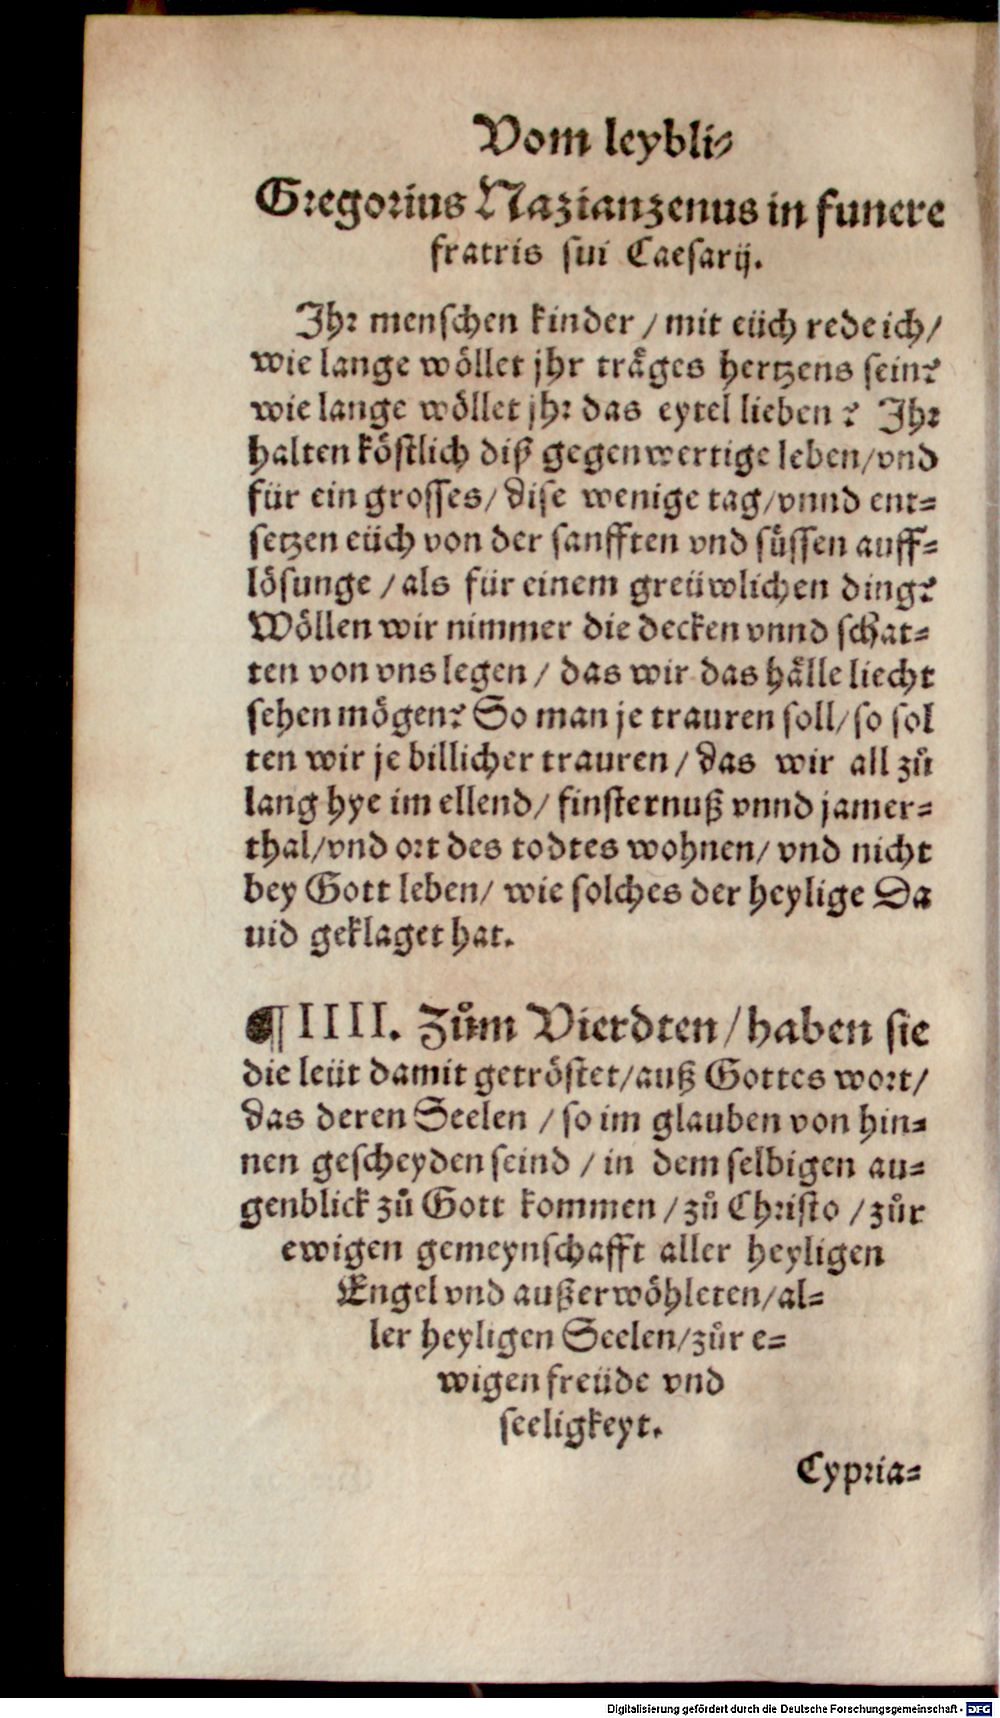 Vom leybli⸗
Gregorius Nazianzenus in funere
fratris sui Caesarij.
Ihr menschen kinder / mit eüch rede ich/
wie lange wöllet jhr träges hertzens sein?
wie lange wöllet jhr das eytel lieben? Ihr
halten köstlich diß gegenwertige leben/vnd
für ein grosses/ dise wenige tag/vnnd ent⸗
setzen eüch von der sanfften vnd süssen auff⸗
lösunge / als für einem greüwlichen ding?
Wöllen wir nimmer die decken vnnd schat⸗
ten von vns legen / das wir das hälle liecht
sehen mögen? So man je trauren soll/ so sol
ten wir je billicher trauren / das wir all zů
lang hye im ellend/ finsternuß vnnd jamer⸗
thal/vnd ort des todtes wohnen/ vnd nicht
bey Gott leben/ wie solches der heylige Da
uid geklaget hat.
¶ IIII. Zům Vierdten / haben sie
die leüt damit getröstet/auß Gottes wort/
das deren Seelen / so im glauben von hin⸗
nen gescheyden seind / in dem selbigen au⸗
genblick zů Gott kommen / zů Christo / zůr
ewigen gemeynschafft aller heyligen
Engel vnd außerwöhleten/al⸗
ler heyligen Seelen/zůr e⸗
wigen freüde vnd
seeligkeyt.
Cypria⸗
Digitalisierung gefördert durch die Deutsche Forschungsgemeinschaft - DFG